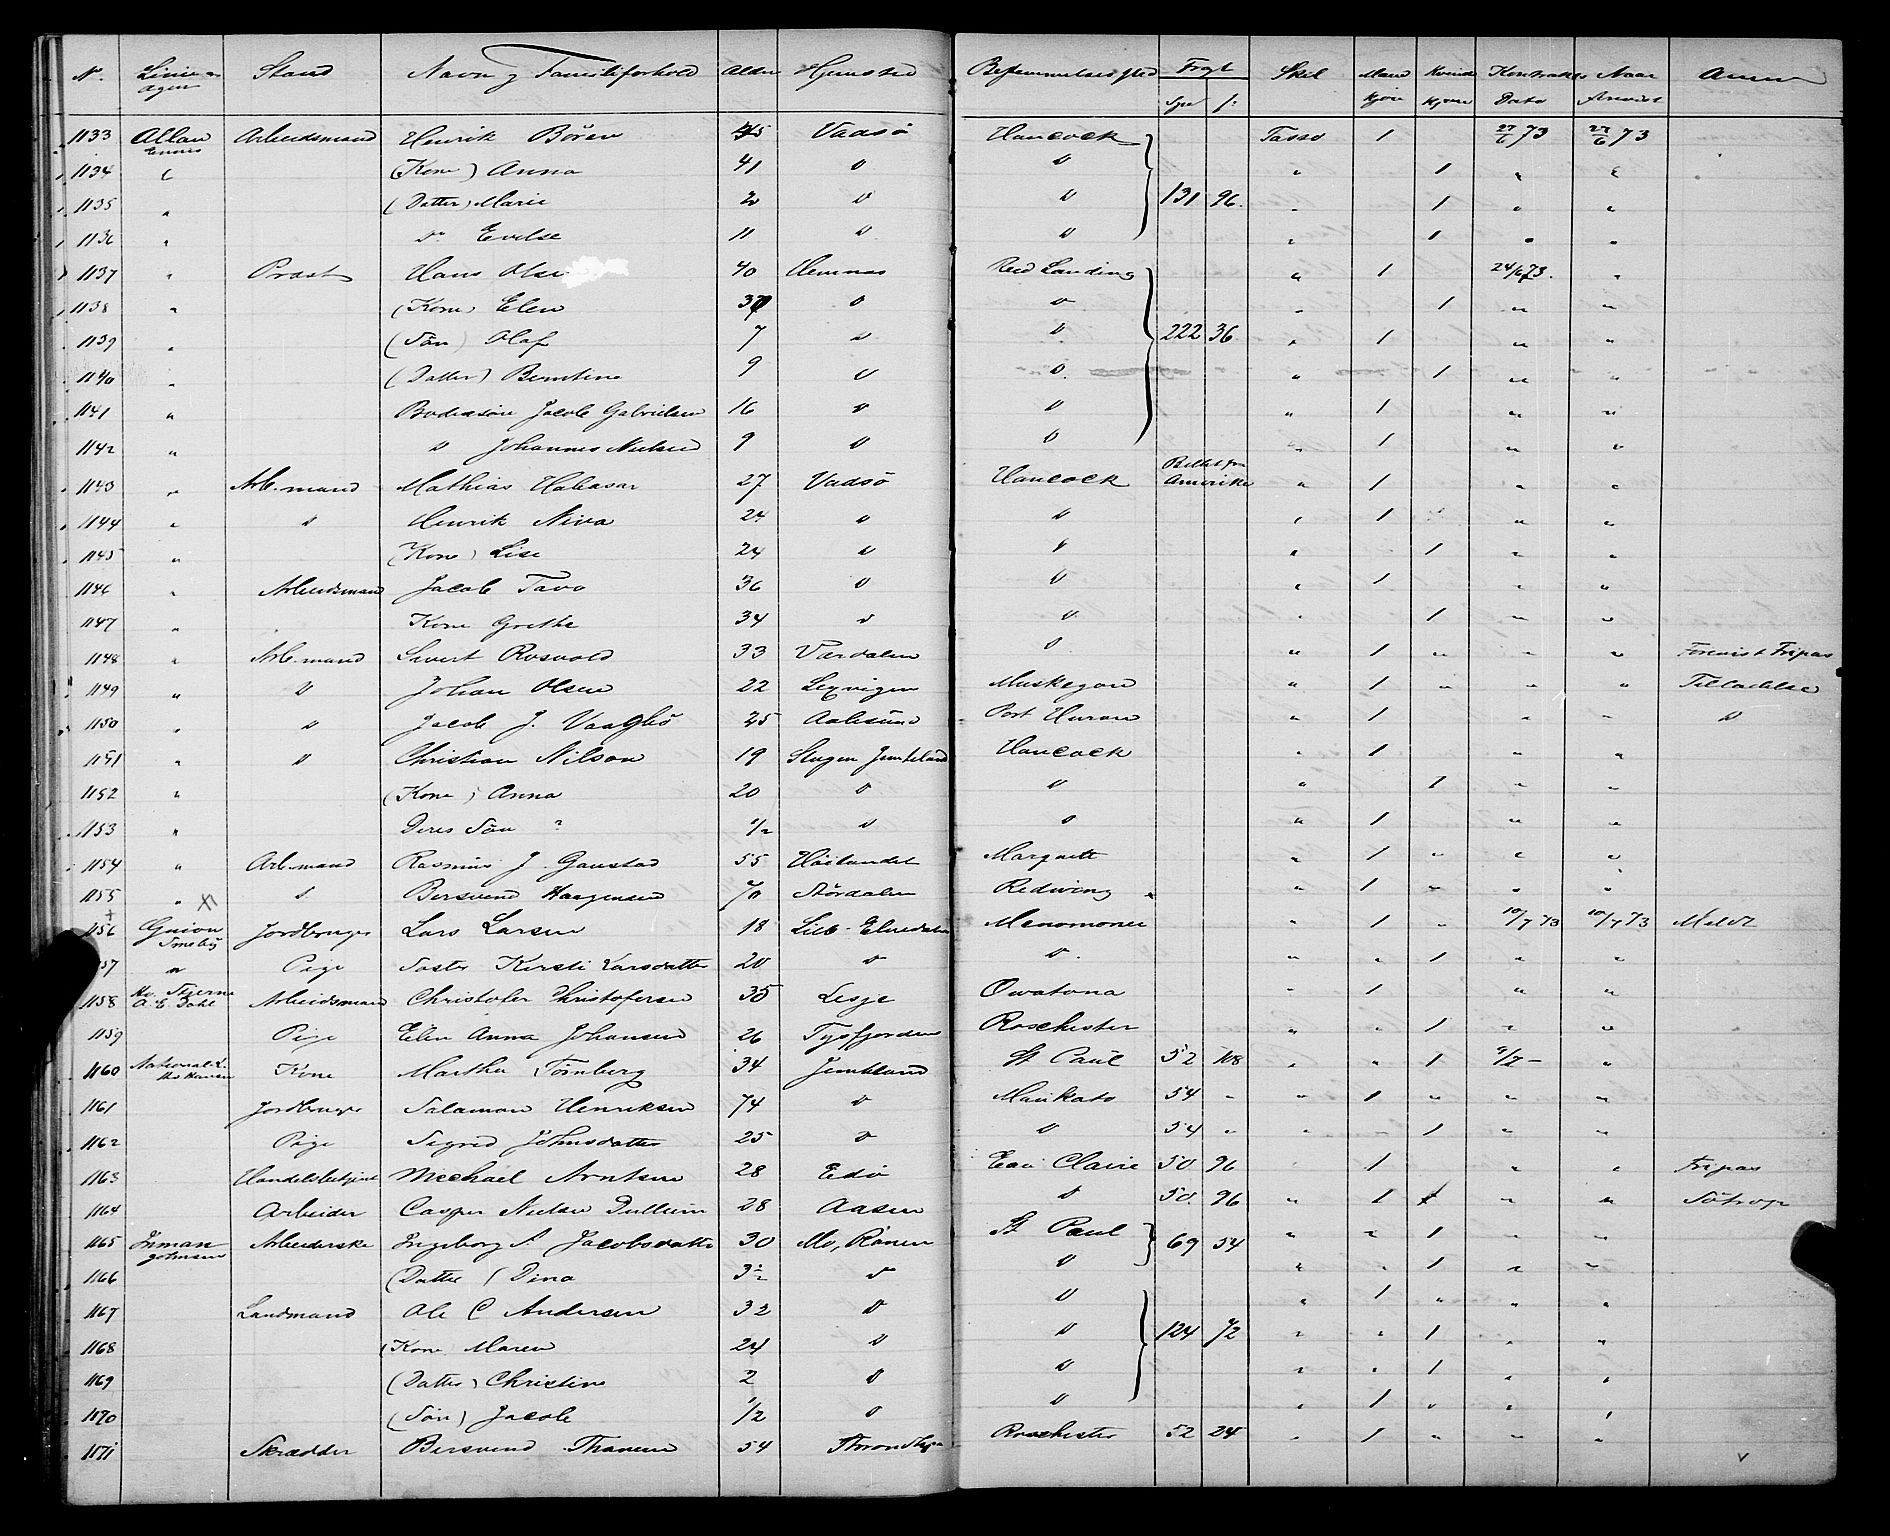 No. Linie og Agent Stand Navn og Familieforhold Alder Hjemsted Bestemmelsessted Fragt Spd ß Skib Mand kjøn Kvinde kjøn Kontrakts Dato Naar Anm
1133 Allan Arbeidsmand Henrik Bören 45 Vadsö Hancock Tasso 1 27/6 73 27/6 73
1134 (Kone) Anna 41 D D " 1 " "
1135 " (Datter) Marie 2 D D 131 96. " 1 " "
1136 " Do Evelse 11 D D " 1 " "
1137 " Præst Hans Olse 40 Hemnæs Red Landing " 1 24/6 73. "
1138 " (Kone) Elen 37 D D " 1 " "
1139 " (Sön) Olaf 7 D D 222 36 " 1 " "
1140 " (Datter) Berntine 9 D D. " 1 " "
1141 " Jacob Gabrielsen 16 D D " 1 " "
1142 " D Johannes Nielsen 9 D D " 1 " "
1143 " Arb. mand Mathias 27 Vadsö Hancock Billet fra Amerika " 1 " "
1144 " D Henrik Niva 24 D D " 1 " "
1145 " (Kone) Lise 24 D D " 1 " "
1146 " Arbeidsmand Jacob Tavo 36 D D " 1 " "
1147 " Kone Grethe 34 D D " 1 " "
1148 " Arb. mand Sivert Rosvold 33 Værdalen D " 1 " " " Forevist Fripas
1149 " D Johan Olsen 22 Lexvigen Muskegon " 1 " " " Tilladelse
1150 " D Jacob J. Vaagbö 25 Aalesund Port Huron " 1 " " D
1151 " D Christian Nilson 19 Stugen Jemteland Hancock " 1 " "
1152 " (Kone) Anna 20 D D " 1 " "
1153 " Deres Sön ? 1/2 D D " 1 " "
1154 " Arb. mand Rasmus J. Gaustad 55 Höilandet Marquett " 1 " " "
1155 " Bersvend Haagensen 70 Stördalen Redwing " 1 " " "
1156 Guion Jordbruger Lars Larsen 18 Lille-Elvedalen Menomonee " 1 " 10/7 73 10/7 73 Meldt
57 " Pige Söster Kersti Larsdatter 20 D D. " " 1 " "
1158 Hv. Stjerne A. E. Dahl Arbeidsmand Christofer Christofersen 35 Lesje Owatona " 1 " "
1159 Pige Elen Anna Johansen 26 Tysfjorden Roschester " " 1 " "
1160 National-L. Kone Martha Törnberg 34 Jemtland St Paul 52 108 " " 1 9/7 - "
1161 Jordbruger Salamon Henriksen 74 D Mankato 54 " " 1 " " "
1162 Pige Sigrid Johnsdatter 25 D D 54 " " " 1 " "
1163 Handelsbetjent Mechael Arntsen 28 Edö Eau Claire 50 96 " 1 " " Fripas
1164 Arbeider Casper Nielsen 28 Aasen D 50. 96 " 1 " " Sötrop
1165 Inman Johnsen Arbeiderske Ingeborg A Jacobsdatter 30 Mo, Ranen St Paul 69 54 " " 1 " "
1166 (Datter) Dina 3 1/2 D D " 1 " "
1167 Landmand Ole C Andersen 32 D D " 1 " " "
1168 (Kone Maren 24 D D 124 72 " " 1 " "
1169 (Datter) Christine 2 D D " " 1 " "
1170 (Sön) Jacob 1/2 D D " 1 " " "
1171 Skrædder Bersvend Thanem 54 Roschester 52 24 " 1 " " "